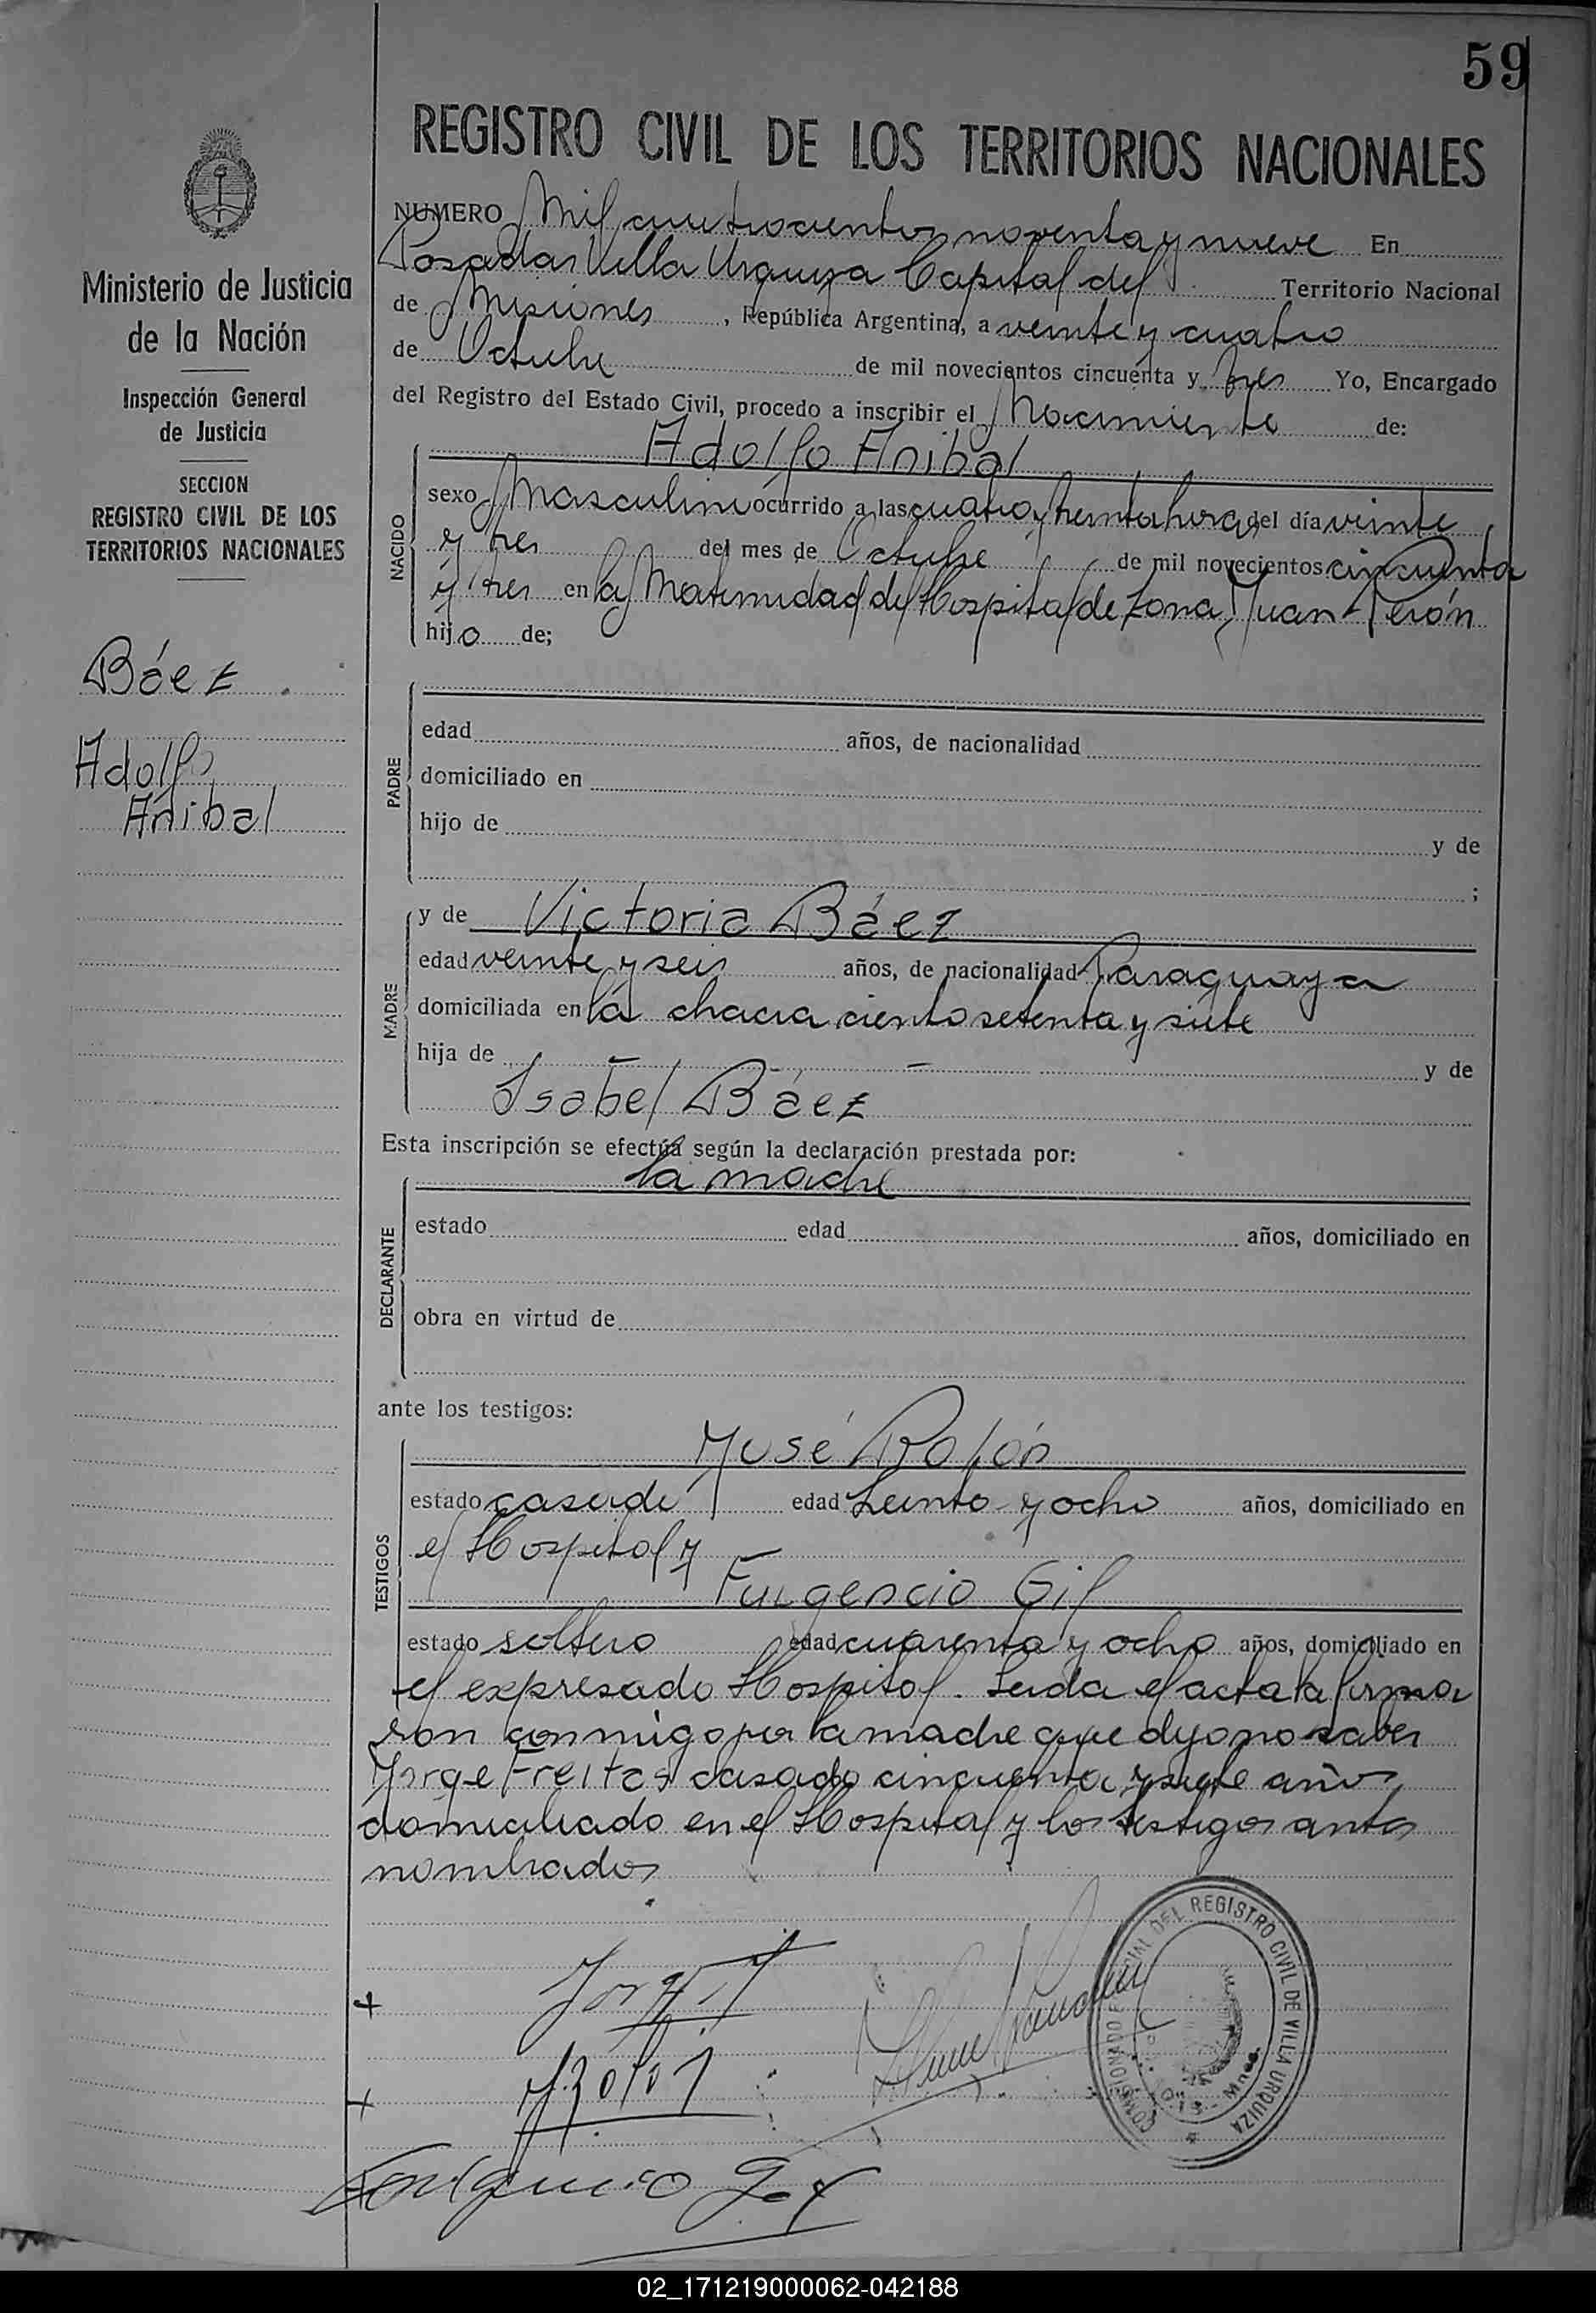 59
REGISTRO CIVIL DE LOS TERRITORIOS NACIONALES
Ministerio de Justicia
de la Nación
Inspección General
de Justicia
SECCION
REGISTRO CIVIL DE LOS
TERRITORIOS NACIONALES
Báez
Adolfo
Anibal
NUMERO Mil cuatrocientos noventa y nueve En
Posadas Villa Urquiza Capital del Territorio Nacional
de Misiones, República Argentina, a veinte y cuatro
de Octubre de mil novecientos cincuenta y tres Yo, Encargado
del Registro del Estado Civil, procedo a inscribir el Nacimiento de:
Adolfo Anibal
NACIDO
sexo Masculino ocurrido a las cuatro y treinta horas del día veinte
y tres del mes de Octubre de mil novecientos cincuenta
y tres en la Maternidad del Hospital de Zona, Juan Perón
hijo de;
PADRE
edad años, de nacionalidad
domiciliado en
hijo de y de
;
MADRE
y de Victoria Báez
edad veinte y seis años, de nacionalidad Paraguaya
domiciliada en la chacra ciento setenta y siete
hija de — — y de
Isabel Báez
Esta inscripción se efectúa según la declaración prestada por:
la madre
DECLARANTE
estado edad años, domiciliado en
obra en virtud de
ante los testigos:
TESTIGOS
José Rolón
estado casado edad treinta y ocho años, domiciliado en
el Hospital y
Fulgencio Gil
estado soltero edad cuarenta y ocho años, domiciliado en
el expresado Hospital. Leida el acta la firma
ron conmigo por la madre que dijo no saber
Jorge Freitas casado cincuenta y siete años
domiciliado en el Hospital y los testigos antes
nombrados
J. Rolón
Fulgencio Gil
DEL REGISTRO CIVIL DE VILLA URQUIZA
02_171219000062-042188